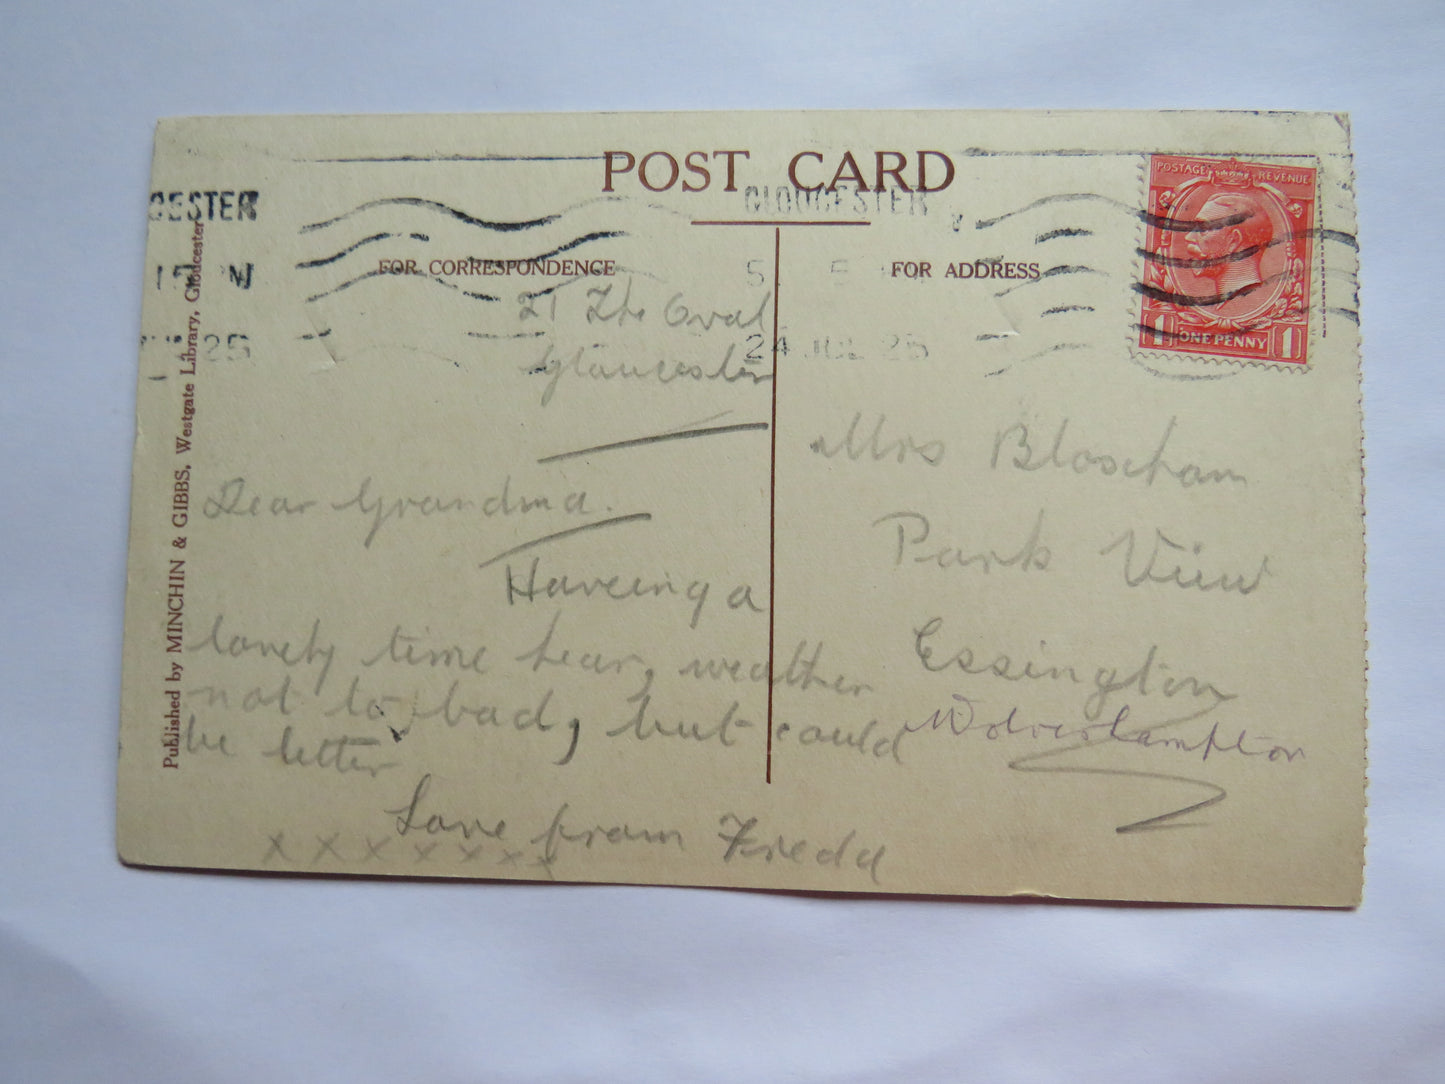 POST CARD
GLOUCESTER
CESTER
FOR CORRESPONDENCE
FOR ADDRESS
24 JUL 25
25
POSTAGE REVENUE
1 ONE PENNY 1
Published by MINCHIN & GIBBS, Westgate Library, Gloucester
21 The Oval
Gloucester
Dear Grandma.
Haveing a
lovely time hear, weather
not to bad, but could
be better
Love from Freda
x x x x x x x
Mrs Bloxham
Park View
Essington
Wolverhampton